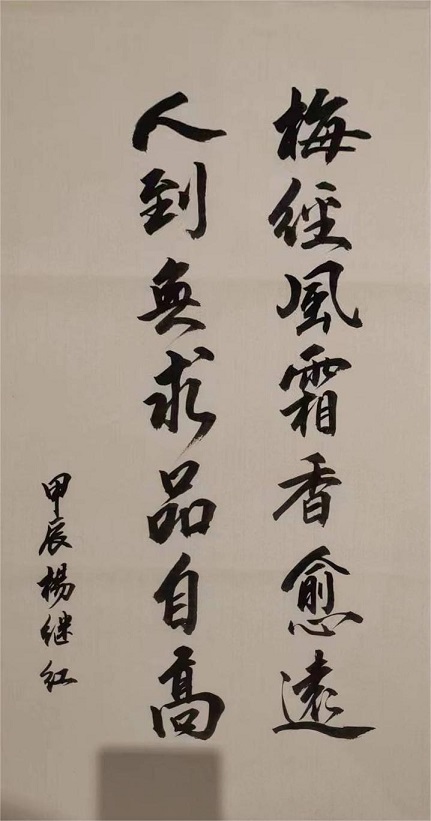 梅經風霜香愈遠
人到無求品自高
甲辰楊继红